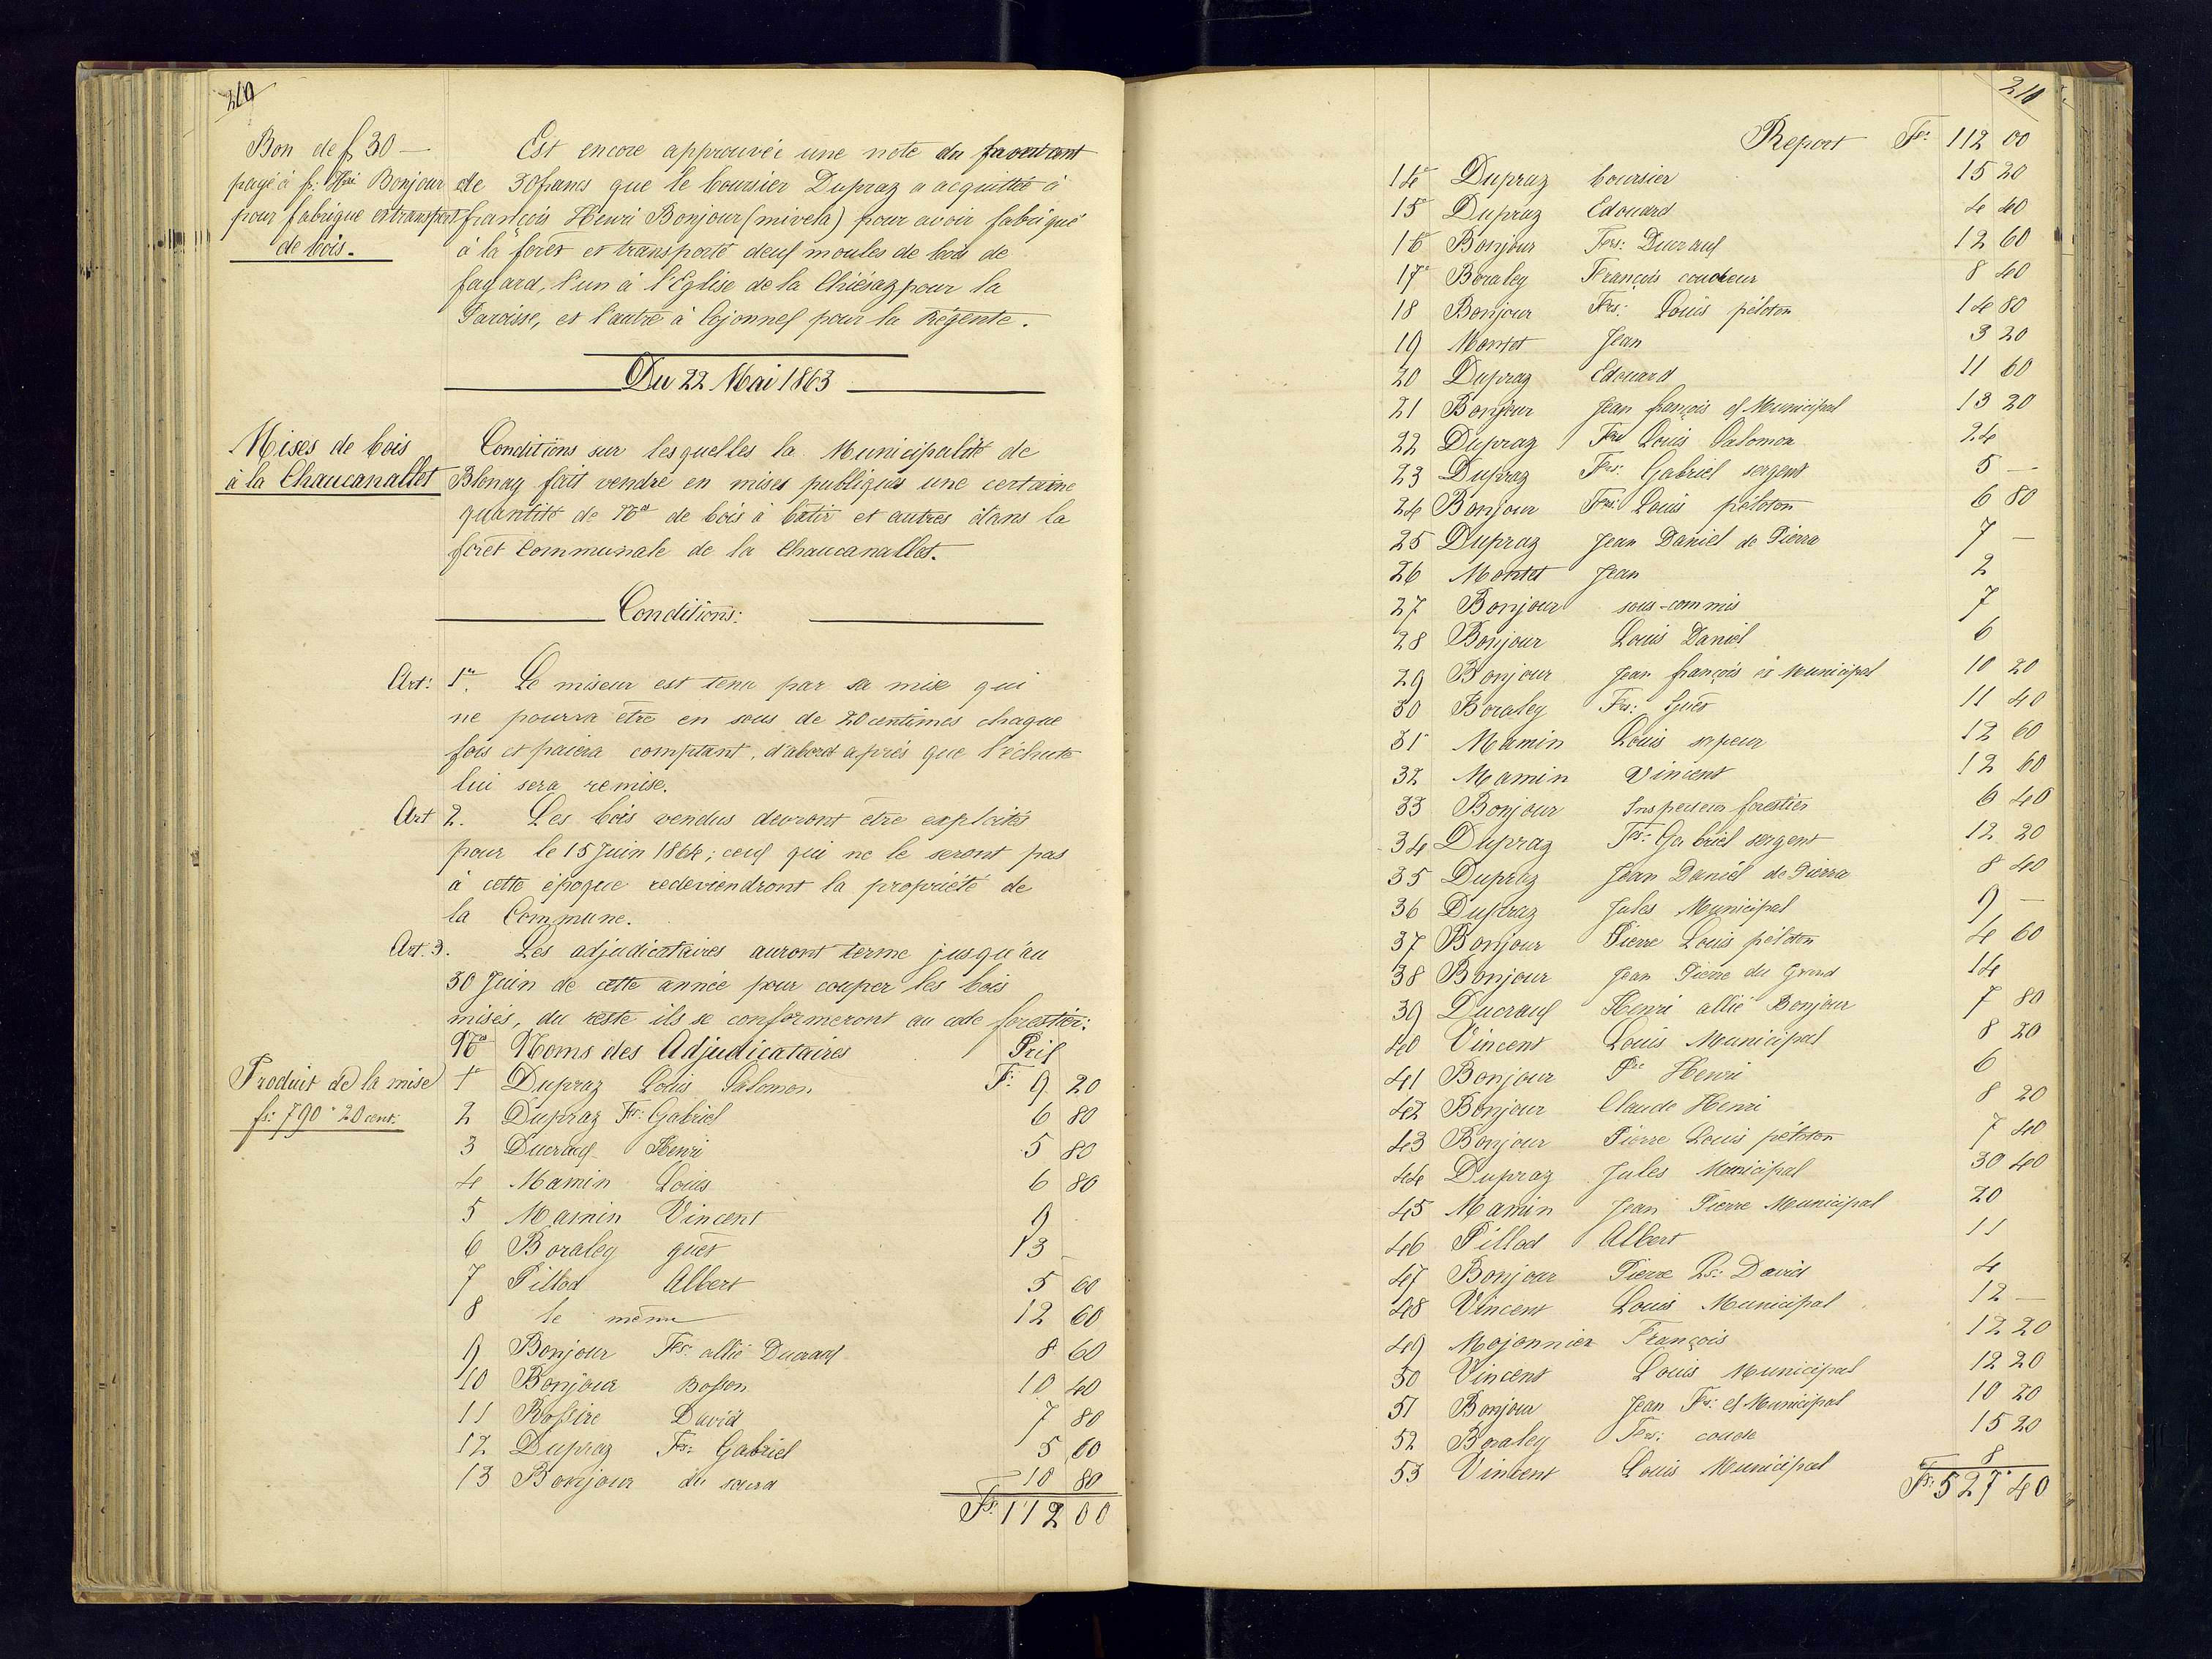 210
Bon de f 30 —
payé à f: Hri Bonjour
pour fabrique et transport
de bois.
Est encore approuvée une note du montant
de 30 francs que le boursier Dupraz a acquitté à
françois Henri Bonjour (mivela) pour avoir fabriqué
à la forêt et transporté deux moules de bois de
fayard, l'un à l'Eglise de la Chiésaz pour la
Paroisse, et l'autre à Cojonnex pour la Régente.
Du 22 Mai 1863
Mises de bois
à la Chaucanallet
Conditions sur lesquelles la Municipalité de
Blonay fait vendre en mises publiques une certaine
quantité de No de bois à bâtir et autres dans la
forêt Communale de la Chaucanallet.
Conditions:
Art: 1er. Le miseur est tenu par sa mise qui
ne pourra être en sous de 20 centimes chaque
fois et paiera comptant, d'abord après que l'échute
lui sera remise.
Art 2. Les bois vendus devront être exploités
pour le 15 Juin 1864; ceux qui ne le seront pas
à cette époque redeviendront la propriété de
la Commune.
Art. 3. Les adjudicataires auront terme jusqu'au
30 Juin de cette année pour couper les bois
misés, du reste ils se conformeront au code forestier.
No Noms des Adjudicataires Prix
Produit de la mise
fs: 790 " 20 cent:
1 Dupraz Louis Salomon F: 9 20
2 Dupraz Fs: Gabriel 6 80
3 Ducraux Henri 5 80
4 Mamin Louis 6 80
5 Mamin Vincent 9
6 Boraley guet 13 —
7 Pillod Albert 5 60
8 le même 12 60
9 Bonjour Fs: allié Ducraux 8 60
10 Bonjour Bosson 10 40
11 Rossire David 7 80
12 Dupraz Fs: Gabriel 5 60
13 Bonjour du 10 80
Fs: 112 00
210
Report Fs: 112 00
14 Dupraz boursier 15 20
15 Dupraz Edouard 4 40
16 Bonjour Frs: Ducraux 12 60
17 Boraley François coudeur 8 40
18 Bonjour Frs: Louis péloton 14 80
19 Montet Jean 3 20
20 Dupraz Edouard 11 60
21 Bonjour Jean françois ex Municipal 13 20
22 Dupraz Frs Louis Salomon 24
23 Dupraz Frs: Gabriel sergent 5 —
24 Bonjour Frs: Louis péloton 6 80
25 Dupraz Jean Daniel de Pierra 7 —
26 Montet Jean 2
27 Bonjour sous-commis 7
28 Bonjour Louis Daniel 6
29 Bonjour Jean françois ex Municipal 10 20
30 Boraley Frs: Guet 11 40
31 Mamin Louis sapeur 12 60
32 Mamin Vincent 12 60
33 Bonjour Inspecteur forestier 6 40
34 Dupraz Frs: Gabriel sergent 12 20
35 Dupraz Jean Daniel de Pierra 8 40
36 Dupraz Jules Municipal 9 —
37 Bonjour Pierre Louis péloton 4 60
38 Bonjour Jean Pierre du Grand 14
39 Ducraux Henri allié Bonjour 7 80
40 Vincent Louis Municipal 8 20
41 Bonjour Pre Henri 6
42 Bonjour Claude Henri 8 20
43 Bonjour Pierre Louis péloton 7 40
44 Dupraz Jules Municipal 30 40
45 Mamin Jean Pierre Municipal 20
46 Pillod Albert 11
47 Bonjour Pierre Ls: David 4
48 Vincent Louis Municipal 12 —
49 Mojonnier François 12 20
50 Vincent Louis Municipal 12 20
51 Bonjour Jean Fs: ex Municipal 10 20
52 Boraley Frs: coude 15 20
53 Vincent Louis Municipal 8
Fs: 527 " 40